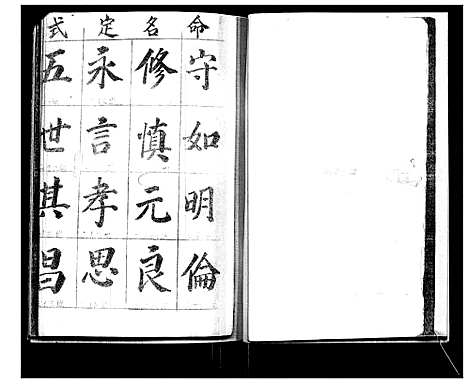 命名定式
守如明倫
修慎元良
永言孝思
五世其昌